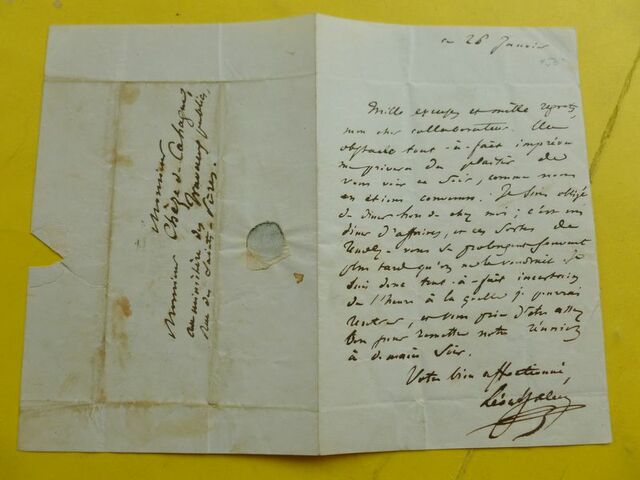 ce 26 Janvier
Mille excuses et mille regrets,
mon cher collaborateur. Un
obstacle tout-à-fait imprévu
me privera du plaisir de
vous voir ce soir, comme nous
en étions convenus. Je suis obligé
de dîner hors de chez moi ; c'est un
dîner d'affaires, et ces sortes de
rendez-vous se prolongent souvent
plus tard qu'on ne le voudrait. Je
suis donc tout-à-fait incertain
de l'heure à laquelle je pourrai
rentrer, et vous prie d'être assez
bon pour remettre notre réunion
à demain soir.
Votre bien affectionné,
Léon
Monsieur
Monsieur Chèze de Cahagne,
au ministère des Travaux publics,
Rue des Saints-Pères.